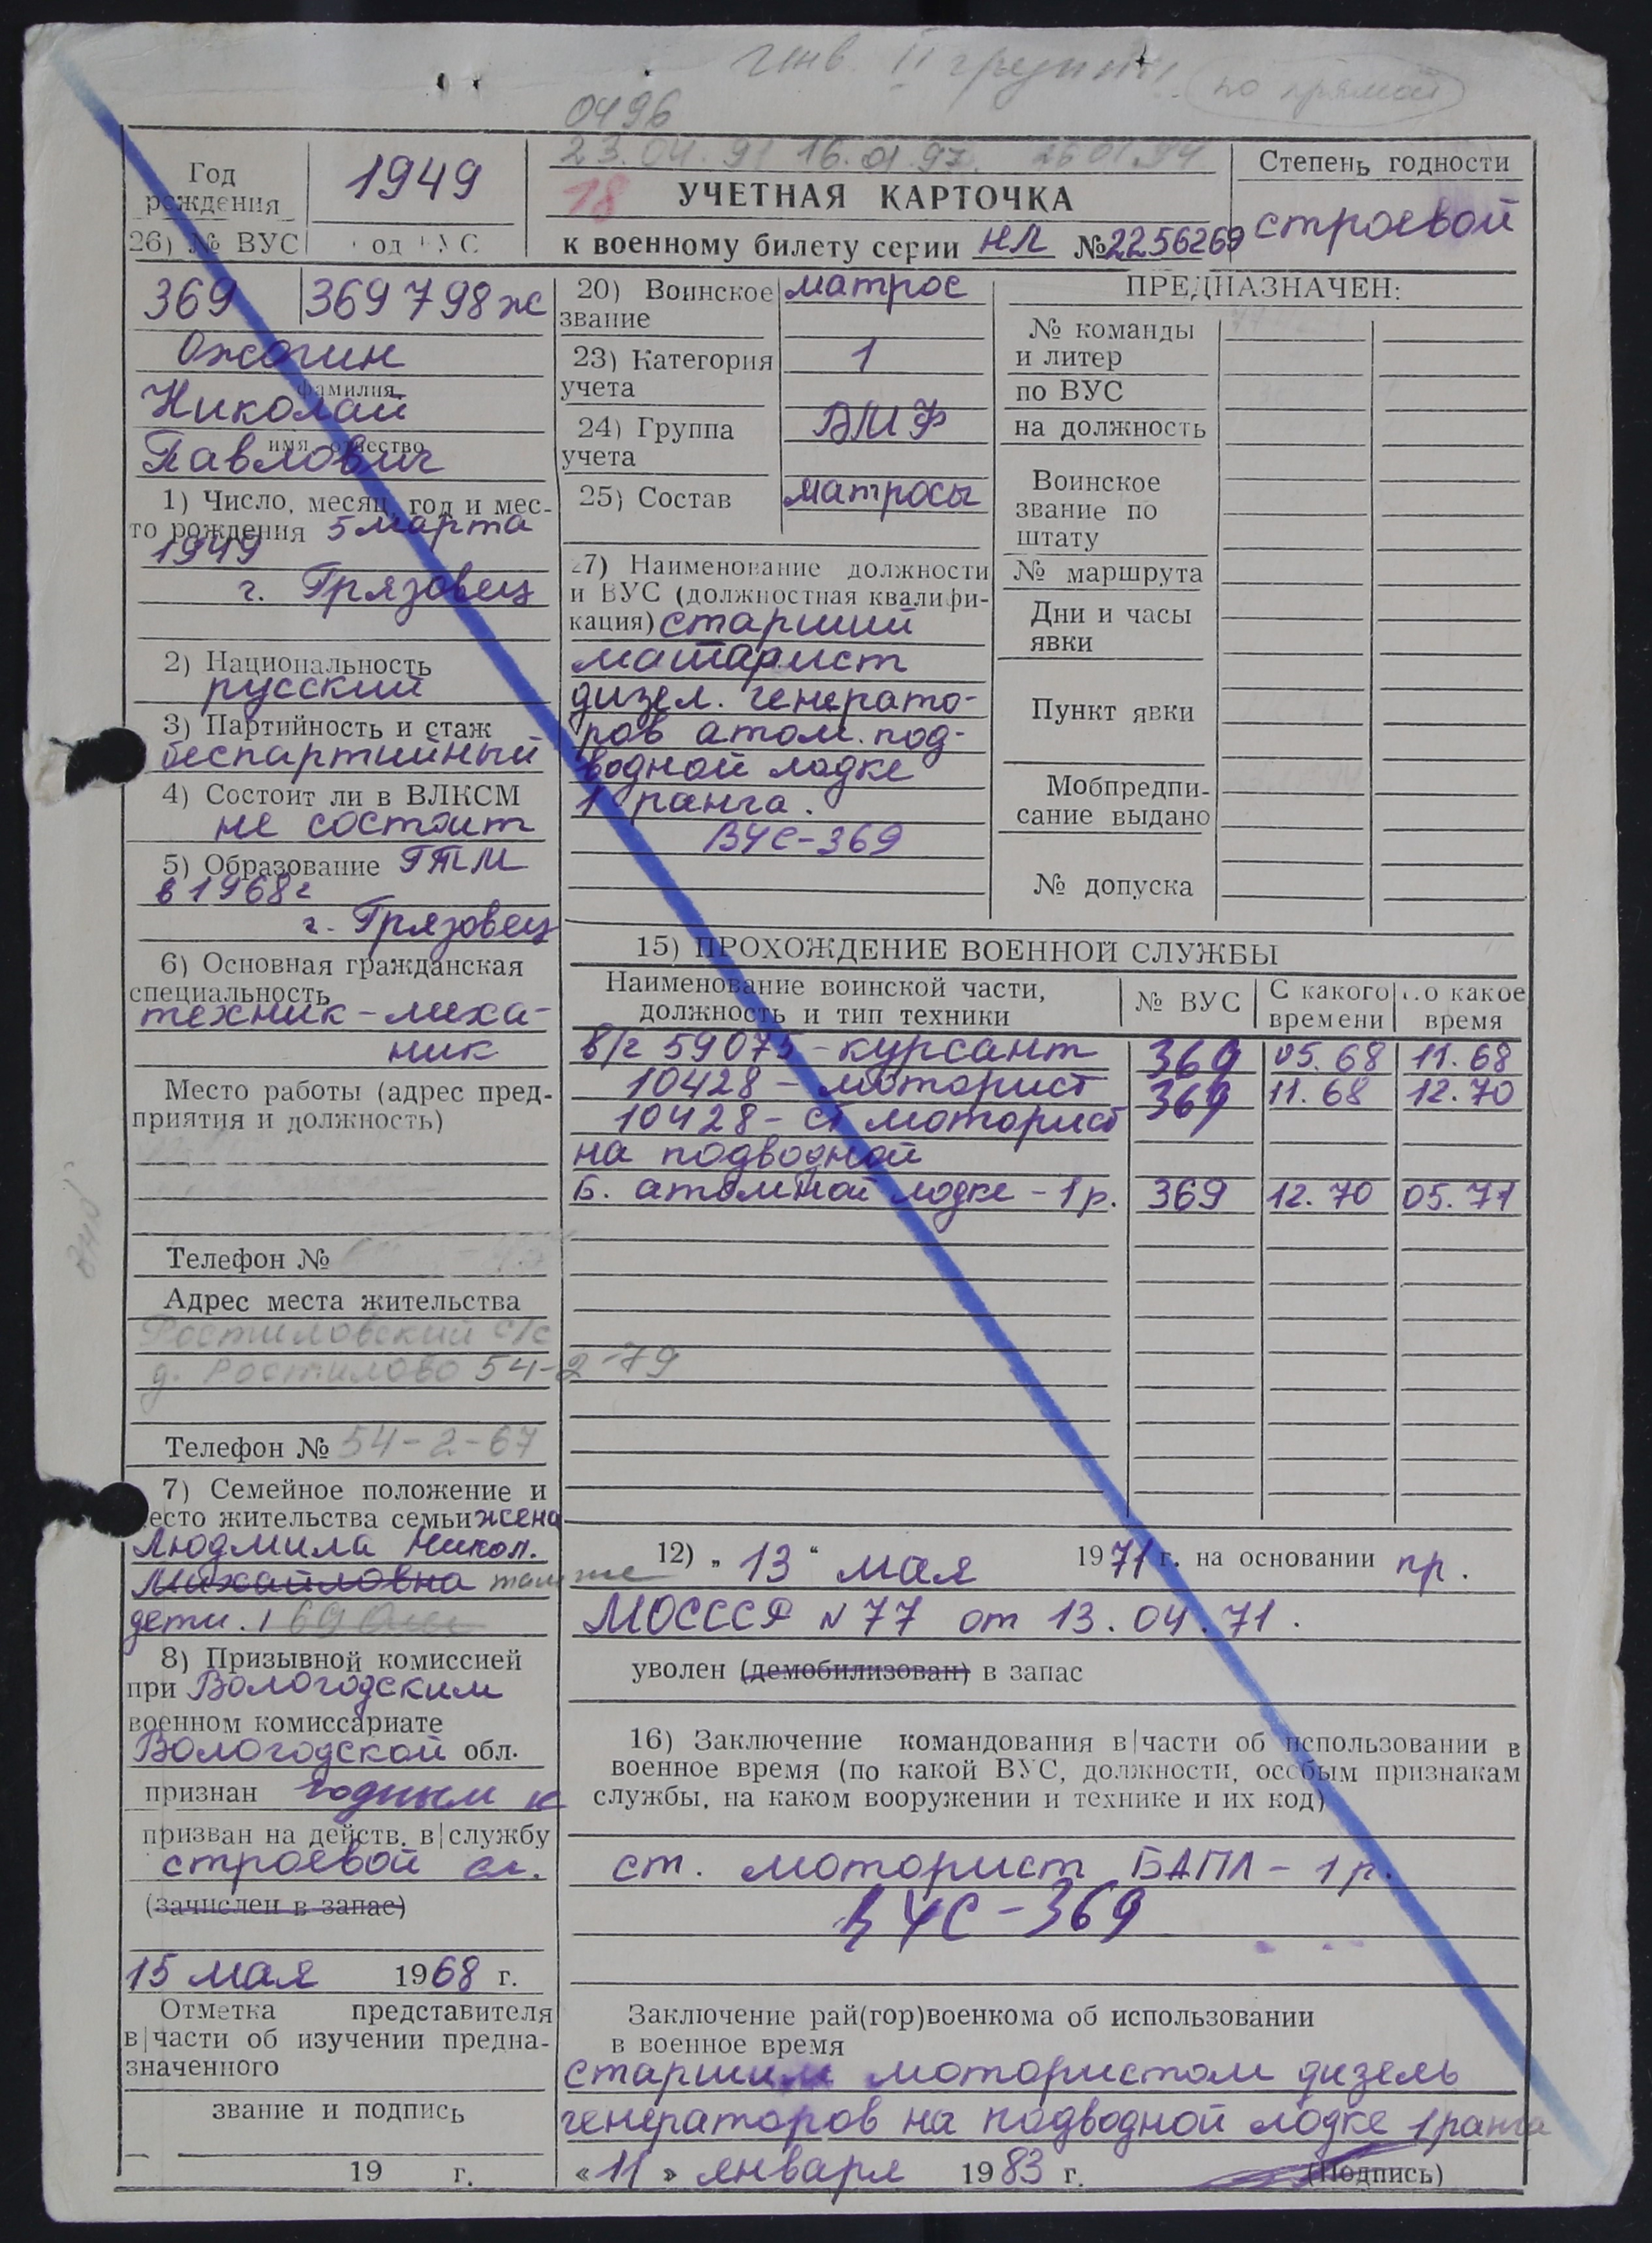 инв. II группы по прямой
0496
23.04.91 16.01.97. 26 01.94
Год рождения
1949
18
УЧЕТНАЯ КАРТОЧКА
к военному билету серии НЛ № 2256269
Степень годности
строевой
26) № ВУС
369
369 798 ж
Ожогин
фамилия
Николай
имя, отчество
Павлович
1) Число, месяц, год и мес-
то рождения 5 марта
1949
г. Грязовец
2) Национальность
русский
3) Партийность и стаж
беспартийный
4) Состоит ли в ВЛКСМ
не состоит
5) Образование ГТМ
в 1968г
г. Грязовец
6) Основная гражданская
специальность
техник-меха-
ник
Место работы (адрес пред-
приятия и должность)
Телефон №
Адрес места жительства
Ростиловский с/с
д. Ростилово 54-2-79
Телефон № 54-2-67
7) Семейное положение и
место жительства семьи жена
Людмила Никол.
Михайловна там же
дети. 1 69
8) Призывной комиссией
при Вологодским
военном комиссариате
Вологодской обл.
признан годным к
призван на действ. в|службу
строевой сл.
(зачислен в запас)
15 мая 1968 г.
Отметка представителя
в|части об изучении предна-
значенного
звание и подпись
19 г.
20) Воинское
звание
матрос
23) Категория
учета
1
24) Группа
учета
ВМФ
25) Состав
матросы
27) Наименование должности
и ВУС (должностная квалифи-
кация) старший
матарист
дизел. генерато-
ров атом. под-
водной лодке
1 ранга.
ВУС-369
ПРЕДНАЗНАЧЕН:
№ команды
и литер
по ВУС
на должность
Воинское
звание по
штату
№ маршрута
Дни и часы
явки
Пункт явки
Мобпредпи-
сание выдано
№ допуска
15) ПРОХОЖДЕНИЕ ВОЕННОЙ СЛУЖБЫ
Наименование воинской части,
должность и тип техники
№ ВУС
С какого
времени
По какое
время
в/г 59075 - курсант 369 05.68 11.68
10428 - моторист 369 11.68 12.70
10428 - ст моторист
на подводной
Б. атомной лодке - 1 р. 369 12.70 05.71
12) „ 13 “ мая 1971 г. на основании пр.
МОСССР N 77 от 13.04.71.
уволен (демобилизован) в запас
16) Заключение командования в|части об использовании в
военное время (по какой ВУС, должности, особым признакам
службы, на каком вооружении и технике и их код)
ст. моторист БАПЛ - 1 р.
ВУС-369
Заключение рай(гор)военкома об использовании
в военное время
старшим мотористом дизель
генераторов на подводной лодке 1 ранга
«11» января 1983 г. (Подпись)